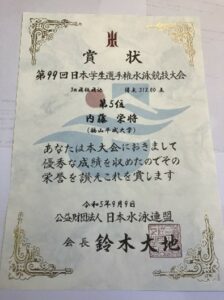 賞状
第99回日本学生選手権水泳競技大会
3m飛板飛込 得点 212.00 点
第5位
内藤 栄将
(福山平成大学)
あなたは本大会におきまして
優秀な成績を収めたのでその
栄誉を讃えこれを賞します
令和5年9月9日
公益財団法人 日本水泳連盟
会長 鈴木大地